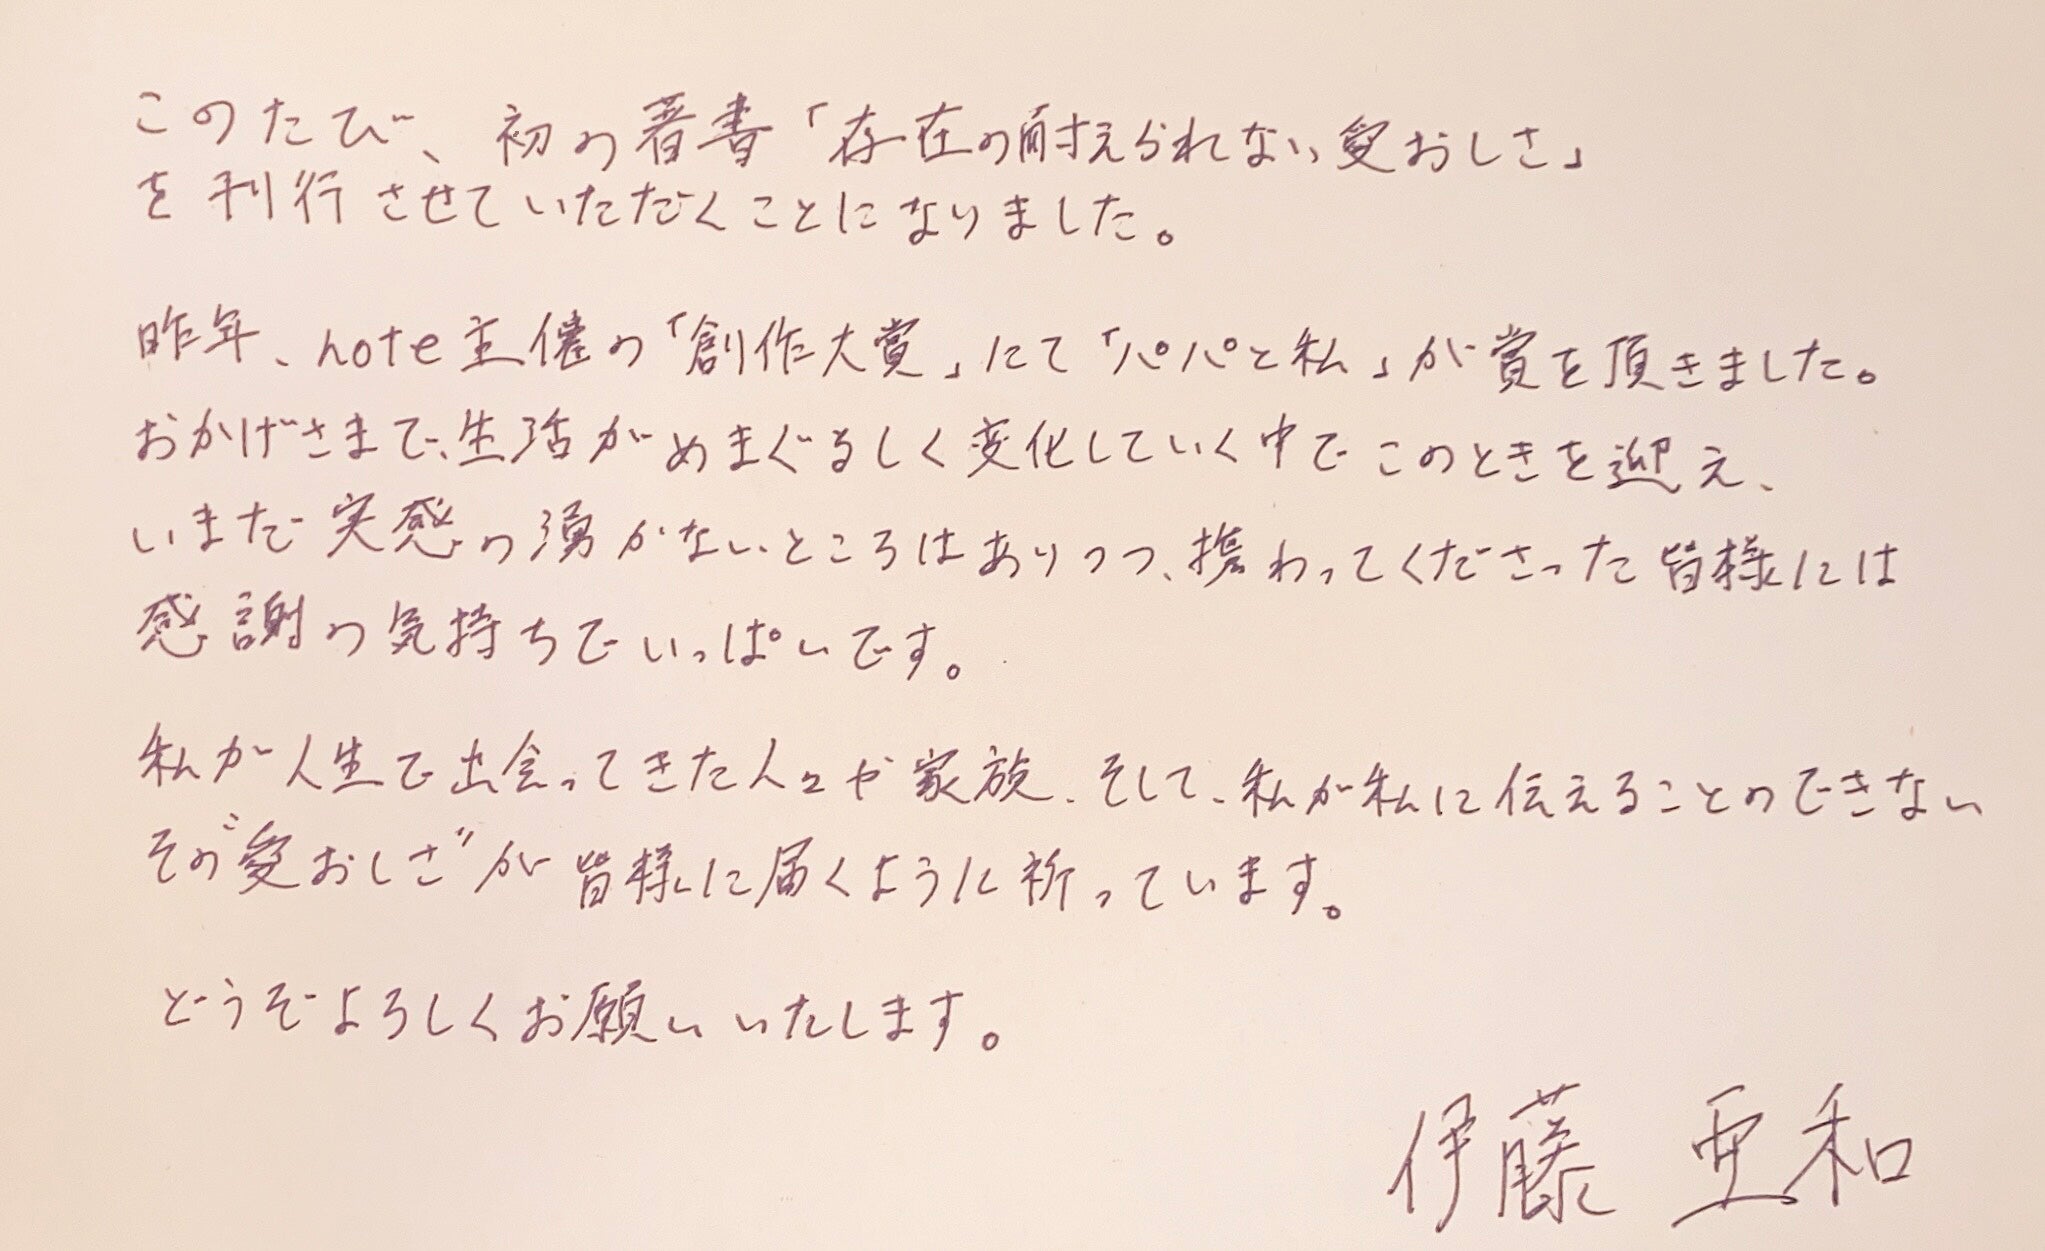 このたび、初の著書「存在の耐えられない愛おしさ」
を刊行させていただくことになりました。
昨年、note主催の「創作大賞」にて「パパと私」が賞を頂きました。
おかげさまで、生活がめまぐるしく変化していく中でこのときを迎え、
いまだ実感の湧かないところはありつつ、携わってくださった皆様には
感謝の気持ちでいっぱいです。
私が人生で出会ってきた人々や家族、そして、私が私に伝えることのできない
その“愛おしさ”が皆様に届くように祈っています。
どうぞよろしくお願いいたします。
伊藤 亜和